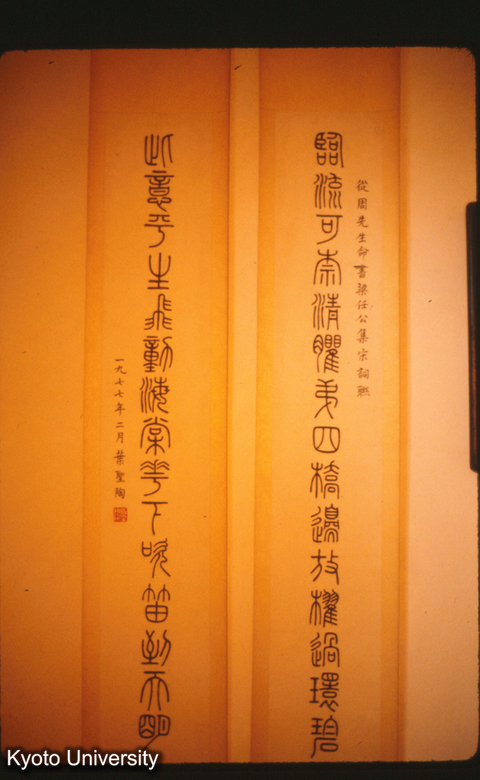 從周先生命書梁任公集宋詞聯
臨流可柰清臞弟四橋邊放櫂過環碧
此意平生飛動海棠花下吹笛到天明
一九七七年二月 葉聖陶
Kyoto University